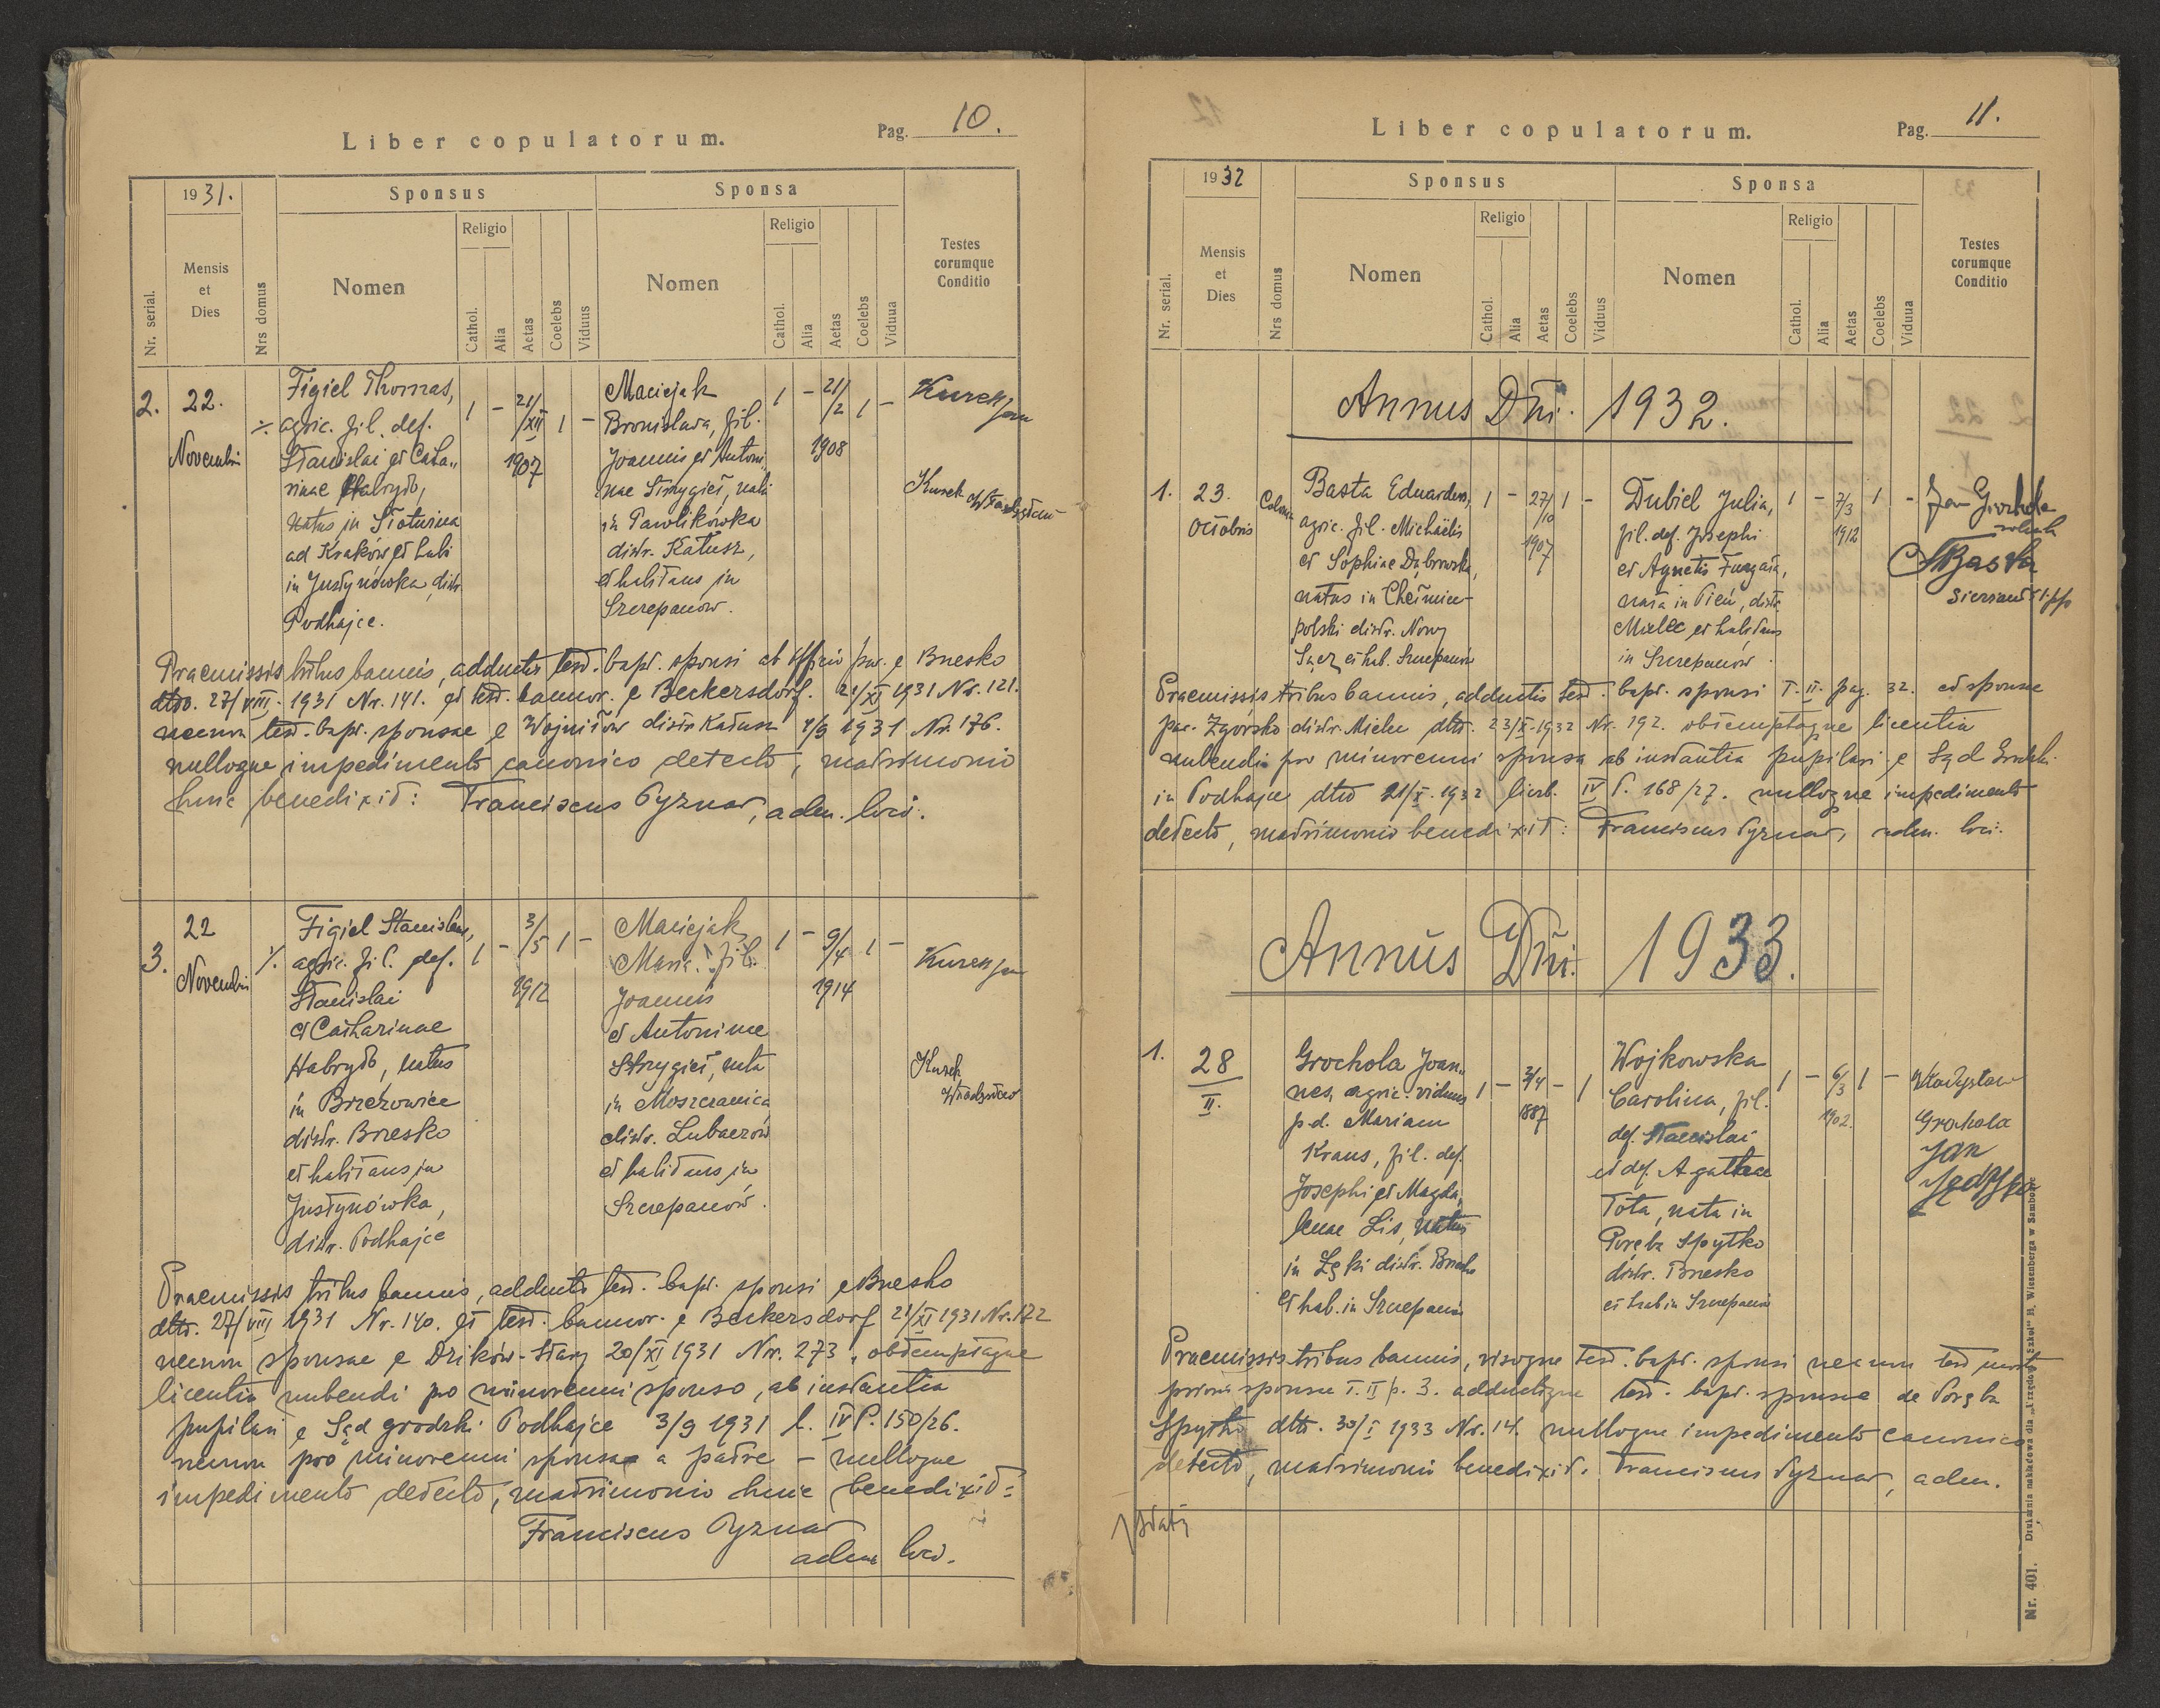 Liber copulatorum.
Pag. 10.
1931.
Sponsus
Sponsa
Nr. serial.
Mensis
et
Dies
Nrs domus
Nomen
Religio
Cathol.
Alia
Aetas
Coelebs
Viduus
Nomen
Religio
Cathol.
Alia
Aetas
Coelebs
Vidua
Testes
eorumque
Conditio
2. 22.
Novembris
Figiel Thomas,
agric. fil. def.
Stanislai et Catha„
rinae Habryło,
natus in
ad Kraków et habi
in Justynówka, distr.
Podhajce.
1 - 21/XII 1907 1 -
Maciejak
Bronislava, fil.
Joannis et Antoni„
nae Strzygieł, nata
in Pawlikówka
distr. Kałusz,
et habitans in
Szczepanów.
1 - 21/2 1908 1 -
Kurek Jan
Kurek Władysław
Praemissis tribus bannis, adductis test. bapt. sponsi ab Officio par. e Brzesko
dtto. 27/VIII. 1931 Nr. 141. et test. bannor. e Beckersdorf. 21/XI 1931 Nr. 121.
necnon test. bapt. sponsae e Wojniłów distr. Kałusz 4/9 1931 Nr. 176.
nulloque impedimento canonico detecto, matrimonio
huic benedixit: Franciscus Pyznar, adm. loci.
3. 22
Novembris
Figiel Stanislaus,
agric. fil. def.
Stanislai
et Catharinae
Habryło, natus
in Brzezowiec
distr. Brzesko
et habitans in
Justynówka,
distr. Podhajce
1 - 3/5 1912 1 -
Maciejak
Maria, fil.
Joannis
et Antoninae
Strzygieł, nata
in Moszczanica
distr. Lubaczów
et habitans in
Szczepanów.
1 - 9/4 1914 1 -
Kurek Jan
Kurek
Władysław
Praemissis tribus bannis, adductis test. bapt. sponsi e Brzesko
dtto. 27/VIII 1931 Nr. 140. et test. bannor. e Beckersdorf 21/XI 1931 Nr. 122
necnon sponsae e Dzików-Stary 20/XI 1931 Nr. 273, obtemptaque
licentia nubendi pro minorenni sponso, ab instantia
pupilari e Sąd grodzki Podhajce 3/9 1931 l. IV P. 150/26.
necnon pro minorenni sponsa a patre - nulloque
impedimento detecto, matrimonio huic benedixit:
Franciscus Pyznar
adm. loci.
Liber copulatorum.
Pag. 11.
1932
Sponsus
Sponsa
Nr. serial.
Mensis
et
Dies
Nrs domus
Nomen
Religio
Cathol.
Alia
Aetas
Coelebs
Viduus
Nomen
Religio
Cathol.
Alia
Aetas
Coelebs
Vidua
Testes
eorumque
Conditio
Annus Dñi. 1932.
1. 23.
Octobris
Colonia
Basta Eduardus,
agric. fil. Michaelis
et Sophiae Dąbrowska,
natus in Chełmiec-
polski distr. Nowy
Sącz et hab. Szczepanów
1 - 27/10 1907 1 -
Dubiel Julia,
fil. def. Josephi
et Agnetis
nata in Pień, distr.
Mielec et habitans
in Szczepanów.
1 - 7/3 1912 1 -
Jan Grochola
Basta
Praemissis tribus bannis, adductis test. bapt. sponsi T. II. pag. 32. et sponsae
par. Zgórsko distr. Mielec dtto. 23/X. 1932 Nr. 192. obtemptaque licentia
nubendi pro minorenni sponsa ab instantia pupilari e Sąd Grodzki
in Podhajce dtto 21/X. 1932 liczb. IV P. 168/27. nulloque impedimento
detecto, matrimonio benedixit: Franciscus Pyznar, adm. loci.
Annus Dñi. 1933.
1. 28
II.
Grochola Joan„
nes, agric. viduus
p. d. Mariam
Kraus, fil. def.
Josephi et Magda„
lenae Lis, natus
in Łęki distr. Brzesko
et hab. in Szczepanów
1 - 2/4 1887 - 1
Wojkowska
Carolina, fil.
def. Stanislai
et def. Agathae
Tota, nata in
Poręba Spytko
distr. Brzesko
et hab in Szczepanów
1 - 6/3 1902. 1 -
Władysław
Grochola
Jan
Praemissis tribus bannis, visoque test. bapt. sponsi necnon test mort.
prioris sponsae T. II p. 3. adductoque test. bapt. sponsae de Poręba
Spytko dtto. 30/I 1933 Nr. 14. nulloque impedimento canonico
detecto, matrimonio benedixit. Franciscus Pyznar, adm.
Nr. 401. Drukarnia nakładowa dla „Urzędów i Szkół" B. Wiesenberga w Samborze